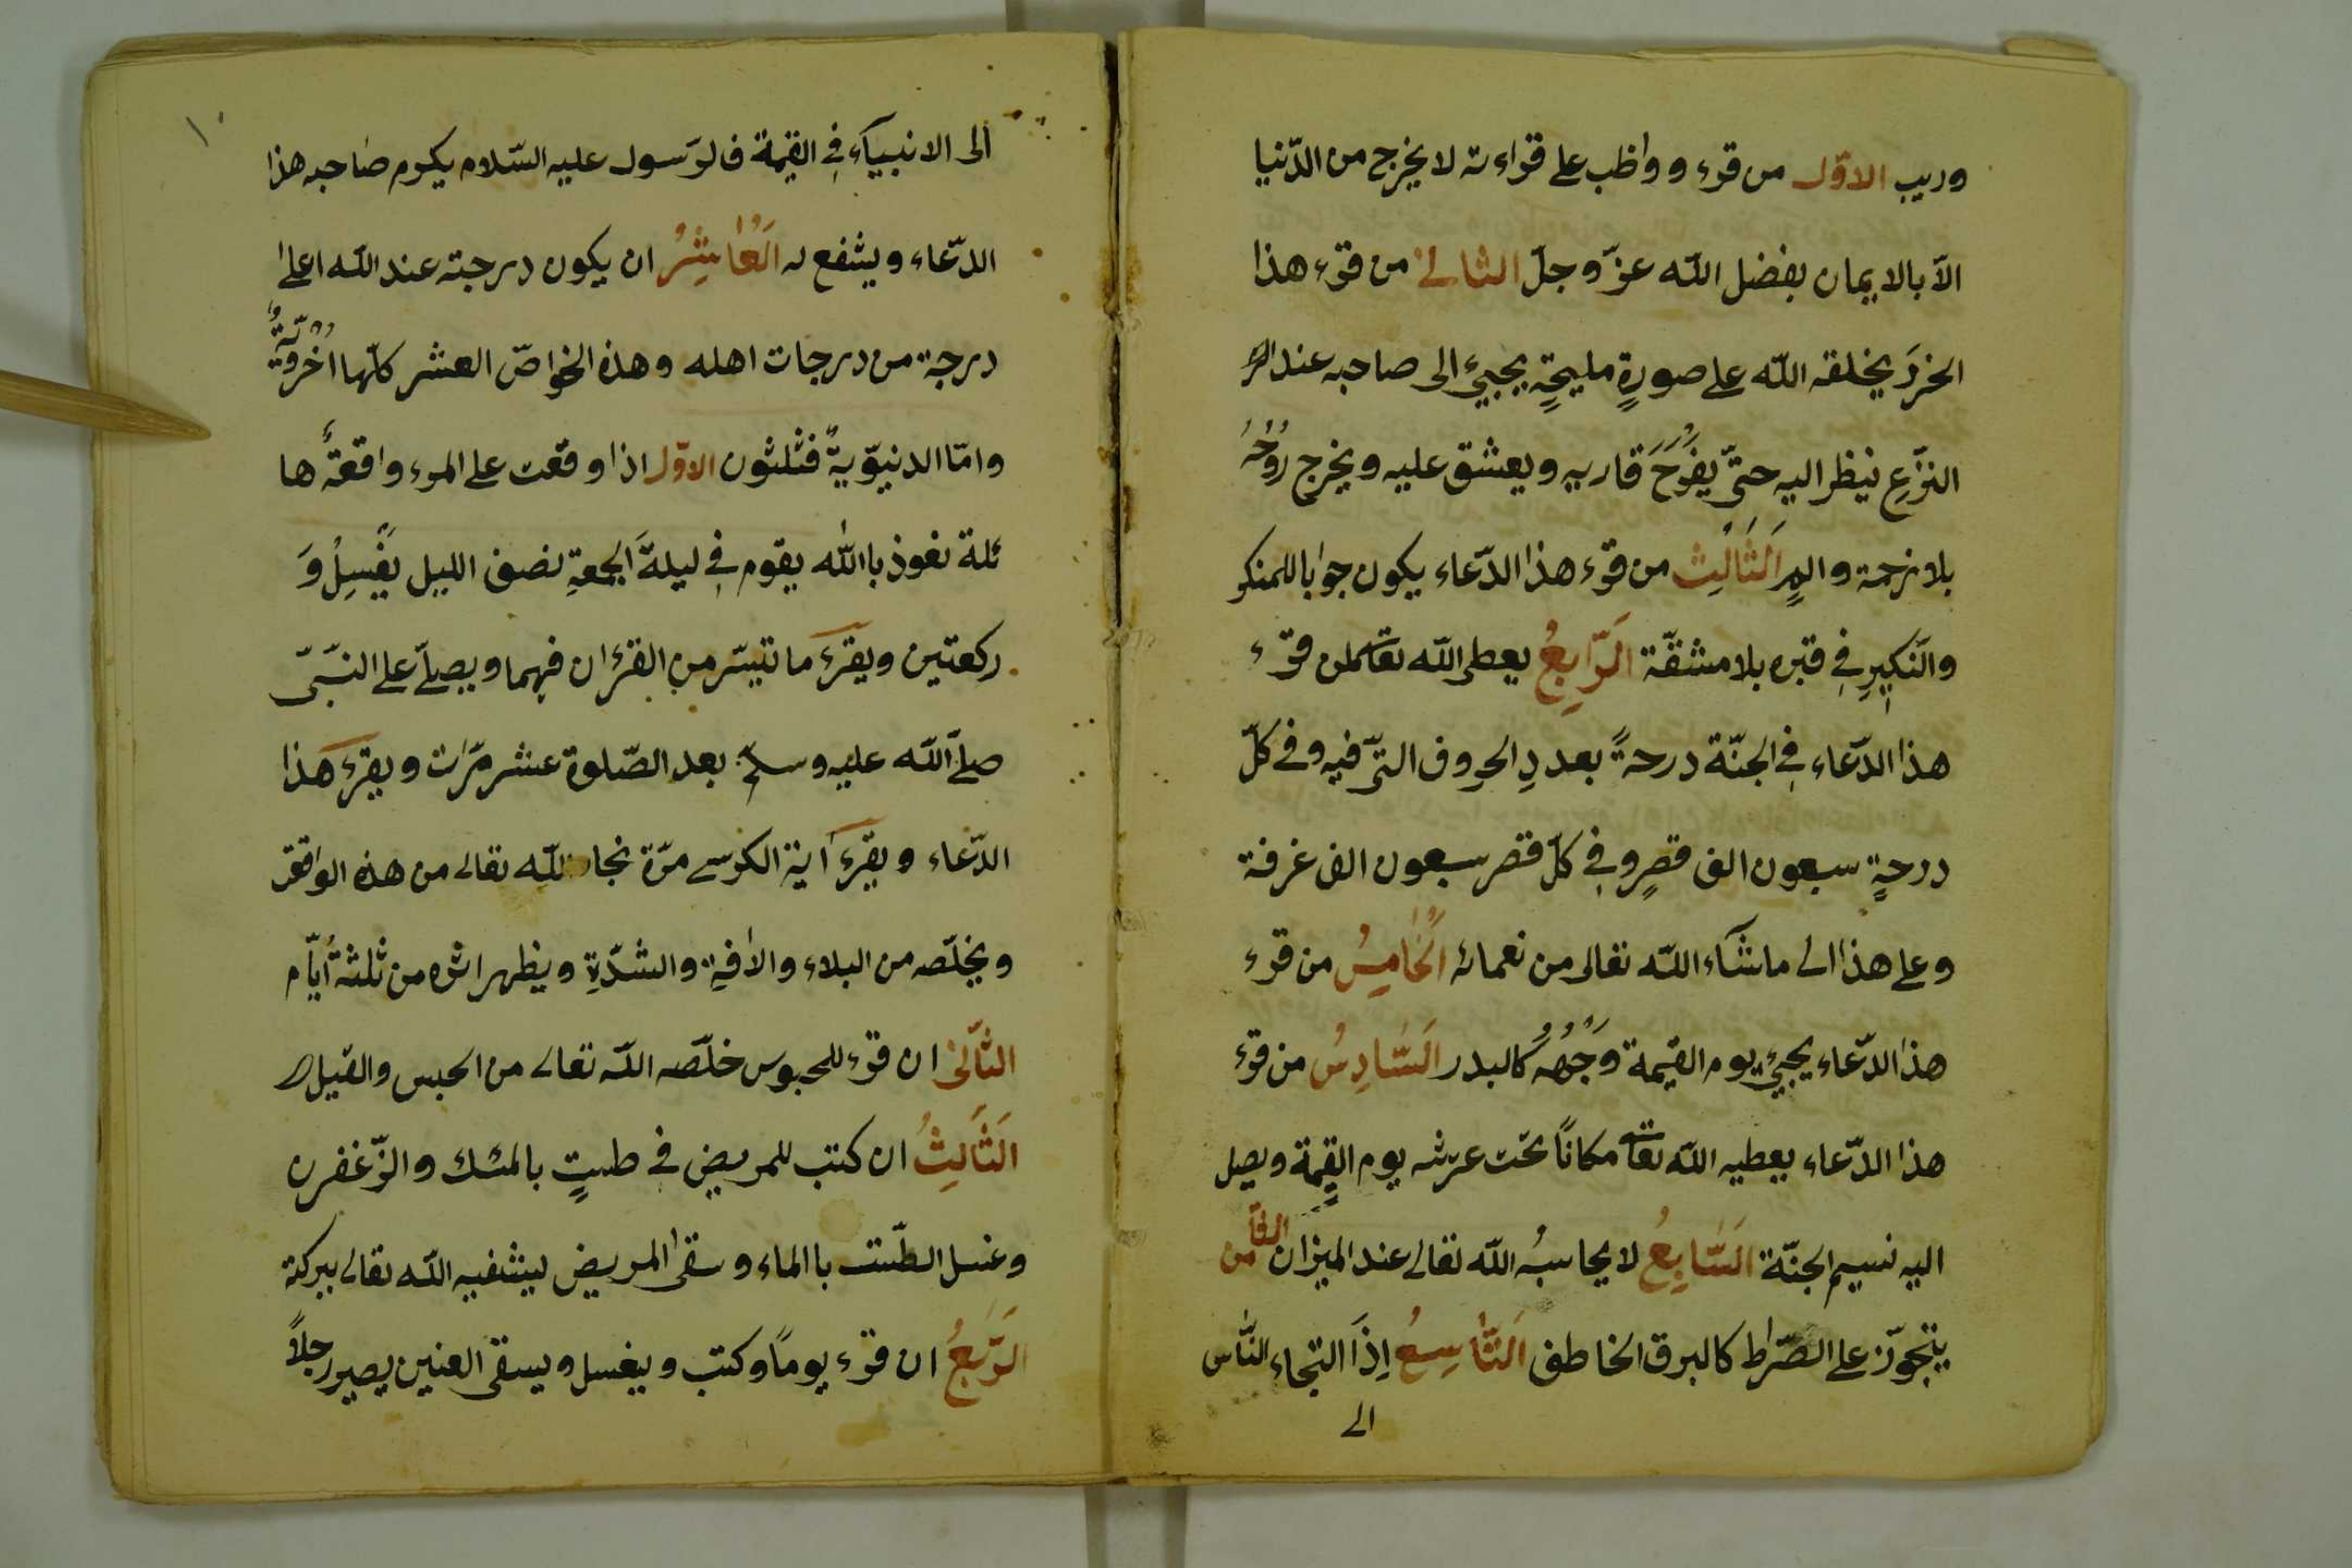 وريب الاوّل من قرء وواظب على قراءته لا يخرج من الدّنيا
الّا بالايمان بفضل اللّه عزّ وجلّ الثانى من قرء هذا
الحزر يخلقه اللّه على صورةٍ مليحةٍ يجيئ الى صاحبه عند
النزعِ ينظر اليه حتّى يفرحَ قاريه ويعشق عليه ويخرج روحُهُ
بلا زحمة والمٍ اَلثَالِث من قرء هذا الدّعاء يكون جوابا للمنكر
والنّكيرِ فِى قبره بلا مشقّة الرّابِعُ يعطى اللّه تعا لمن قرء
هذا الدّعاء فِى الجنّة درجةً بعددِ الحروف الّتى فيه وفى كلّ
درجةٍ سبعون الف قصرٍ وفِى كلّ قصر سبعون الف غرفة
وعلى هذا الى ماشآء اللّه تعالى من نعمائه اَلخَامِسُ من قرء
هذا الدّعاء يجيئ يوم القيمة وَجْهُهُ كالبدر اَلسَّادِسُ من قرء
هذا الدّعاء يعطيه اللّه تعا مكانًا تحت عرشه يوم القيمة ويصل
اليه نسيم الجنّة اَلسَّابِعُ لا يحاسبُه اللّه تعالى عند الميزان الثآمن
يتجوّز على الصّراط كالبرق الخاطف اَلتَّاسِعُ اِذَا التجاء النّاس
الى
١٠
الى الانبيآء فِى القيمة فالرّسول عليه السّلام يكرم صاحبه هذا
الدّعاء ويشفع له اَلعَاشِرُ ان يكون درجته عند اللّه اعلى
درجة من درجات اهله وهذه الخواصّ العشر كلّها اُخْرَوِيّةٌ
وامّا الدنيوّيةٌ فثلثون الاوّل اذا وقعت على المرء واقعةٌ ها
ئلة نعوذ باالله يقوم فِى ليلةَ الجمعةِ نصف الليل يغسِلُ وَ
ركعتين ويقرء ماتيسّر من القرءان فيهما ويصلّى على النّبىّ
صلّى اللّه عليه وسلّم بعد الصّلوة عشر مرّات ويقرء هذا
الدّعاء ويقرء آية الكرسى مرّة نجاه اللّه تعالى من هذه الواقعة
ويخلّصه من البلاء والافةِ والشدّةِ ويظهر اثره من ثلثة ايّام
الثّانى ان قرء للمحبوس خلّصه اللّه تعالى من الحبس والقيل
اَلثَالِثُ ان كتب للمريض فى طستٍ بالمسك والزّغفرن
وغسل الطّست باالماء وسقى المريض ليشفيه اللّه تعالى ببركته
الرّابعُ ان قرء يوماً وكتب ويغسل ويسقى العنين يصير رجلاً